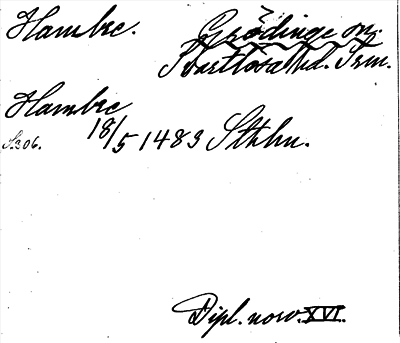 Hambre. Grödinge sn.
Svartlösa hd. Srm.
Hambre
18/5 1483 Sthlm.
S. 306.
Dipl. norv. XVI.